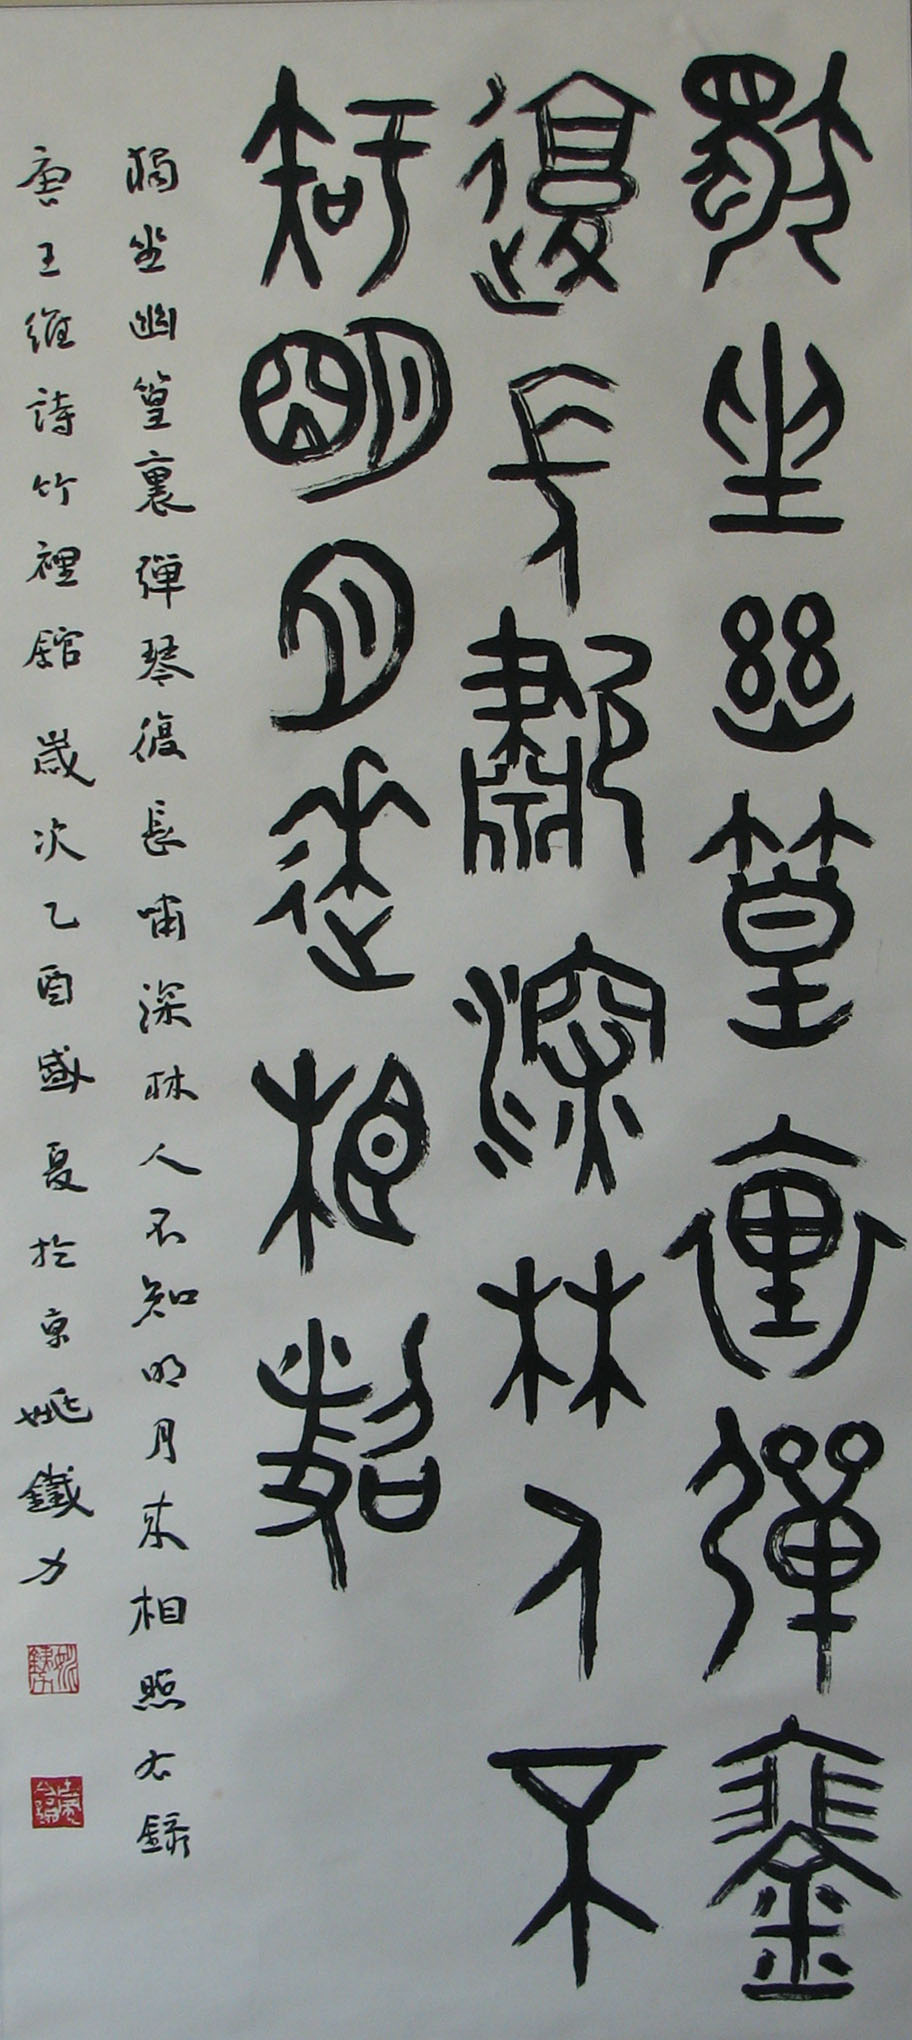 獨坐幽篁裏彈琴
復長嘯深林人不
知明月來相照
獨坐幽篁裏彈琴復長嘯深林人不知明月來相照右錄
唐王維詩竹裡館歲次乙酉盛夏於京姚鐵力